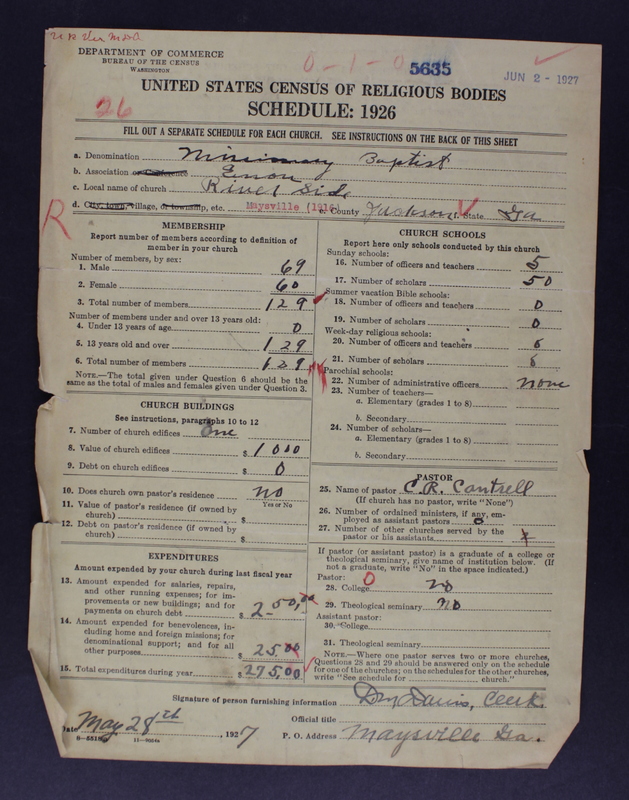 DEPARTMENT OF COMMERCE
BUREAU OF THE CENSUS
WASHINGTON
0-1-0 5635
JUN 2 - 1927
UNITED STATES CENSUS OF RELIGIOUS BODIES
SCHEDULE: 1926
26
FILL OUT A SEPARATE SCHEDULE FOR EACH CHURCH. SEE INSTRUCTIONS ON THE BACK OF THIS SHEET
a. Denomination Missionary Baptist
b. Association or Conference
c. Local name of church River Side
d. City, town, village, or township, etc. Maysville (1916) e. County Jackson f. State Ga
R
MEMBERSHIP
Report number of members according to definition of member in your church
Number of members, by sex:
1. Male 69
2. Female 60
3. Total number of members 129
Number of members under and over 13 years old:
4. Under 13 years of age 0
5. 13 years old and over 129
6. Total number of members 129
NOTE.—The total given under Question 6 should be the
same as the total of males and females given under Question 3.
CHURCH BUILDINGS
See instructions, paragraphs 10 to 12
7. Number of church edifices One
8. Value of church edifices $ 1000
9. Debt on church edifices $ 0
10. Does church own pastor's residence no
Yes or No
11. Value of pastor's residence (if owned by
church) $
12. Debt on pastor's residence (if owned by
church) $
EXPENDITURES
Amount expended by your church during last fiscal year
13. Amount expended for salaries, repairs,
and other running expenses; for im-
provements or new buildings; and for
payments on church debt $ 250.00
14. Amount expended for benevolences, in-
cluding home and foreign missions; for
denominational support; and for all
other purposes $ 25.00
15. Total expenditures during year $ 275.00
CHURCH SCHOOLS
Report here only schools conducted by this church
Sunday schools:
16. Number of officers and teachers 5
17. Number of scholars 50
Summer vacation Bible schools:
18. Number of officers and teachers 0
19. Number of scholars 0
Week-day religious schools:
20. Number of officers and teachers
21. Number of scholars
Parochial schools:
22. Number of administrative officers none
23. Number of teachers—
a. Elementary (grades 1 to 8)
b. Secondary
24. Number of scholars—
a. Elementary (grades 1 to 8)
b. Secondary
PASTOR
25. Name of pastor C.R. Cantrell
(If church has no pastor, write "None")
26. Number of ordained ministers, if any, em-
ployed as assistant pastors 0
27. Number of other churches served by the
pastor or his assistants
If pastor (or assistant pastor) is a graduate of a college or
theological seminary, give name of institution below. (If
not a graduate, write "No" in the space indicated.)
Pastor: 0
28. College no
29. Theological seminary no
Assistant pastor:
30. College
31. Theological seminary
NOTE.—Where one pastor serves two or more churches,
Questions 28 and 29 should be answered only on the schedule
for one of the churches; on the schedules for the other churches,
write "See schedule for church."
Signature of person furnishing information Davis, Clerk.
Official title
Date May 28th, 1927 P. O. Address Maysville Ga.